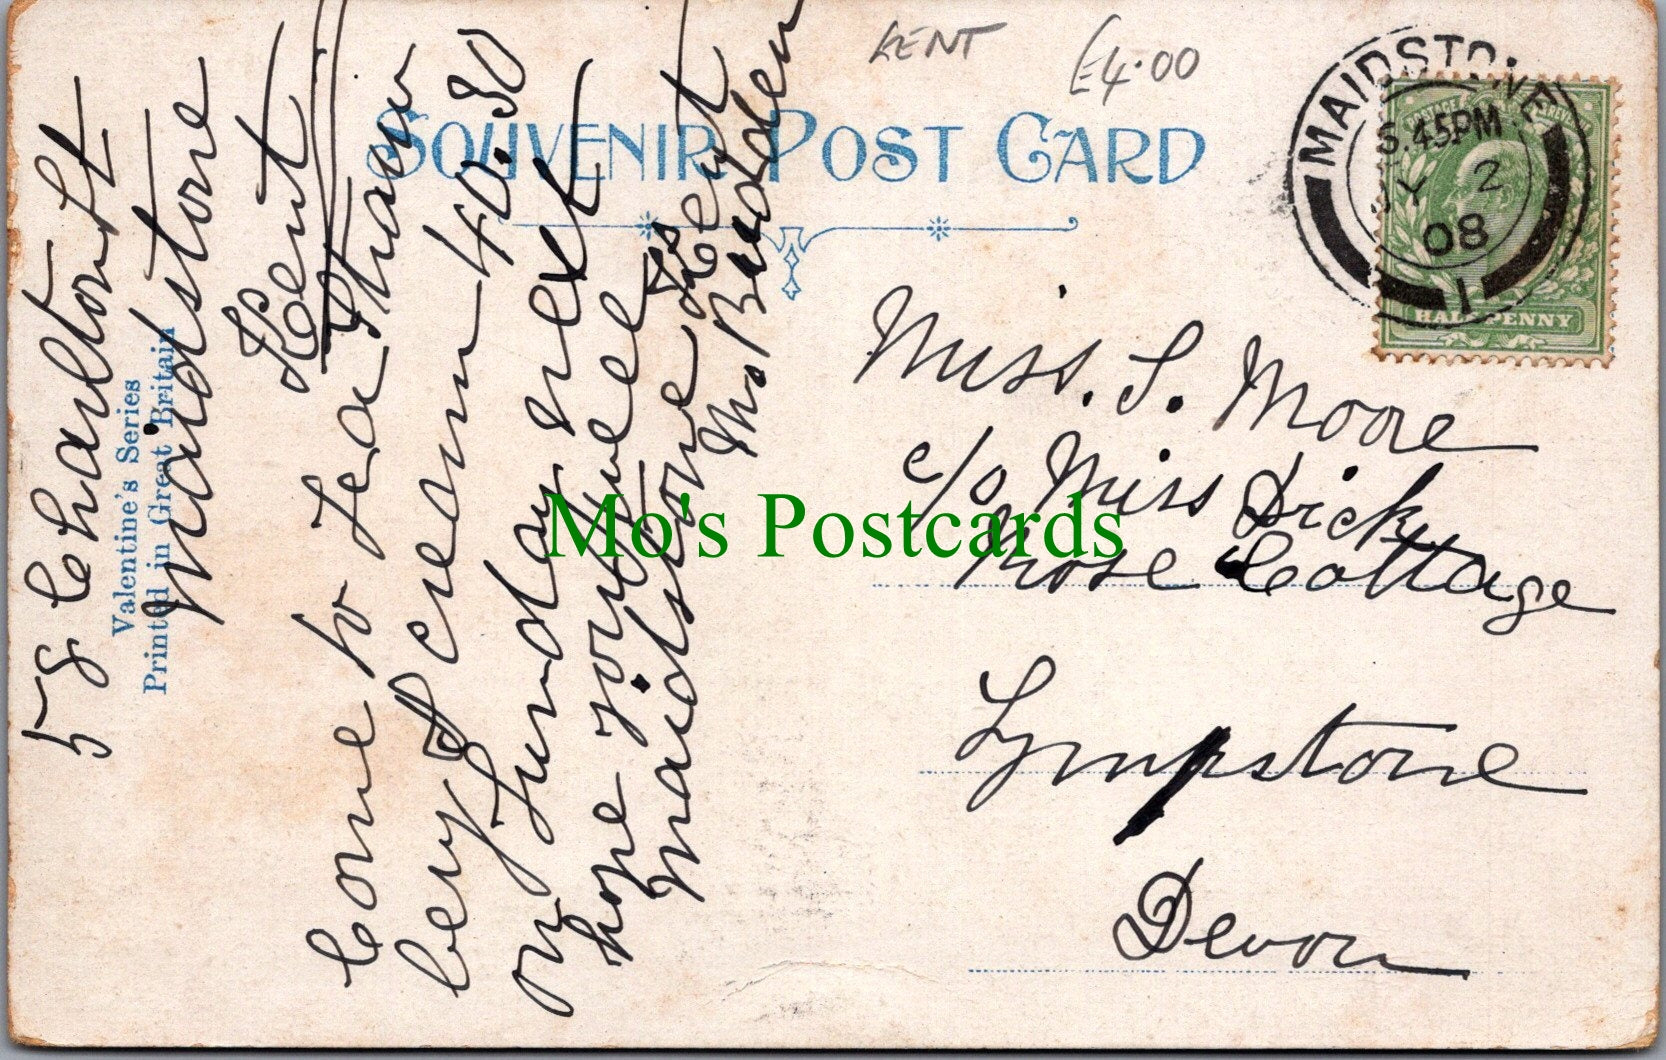 KENT £4.00
SOUVENIR POST CARD
MAIDSTONE
5.45PM
JY 2
08
1
POSTAGE
HALFPENNY
Valentine's Series
Printed in Great Britain
58 Charlton St
Maidstone
Kent
Come to Tea Straw
bery & cream 4 0.30
on Sunday next
hope
Maidstone Kent
Miss. S. Moore
c/o Miss Dick
Rose Cottage
Lympstone
Devon
Mo's Postcards